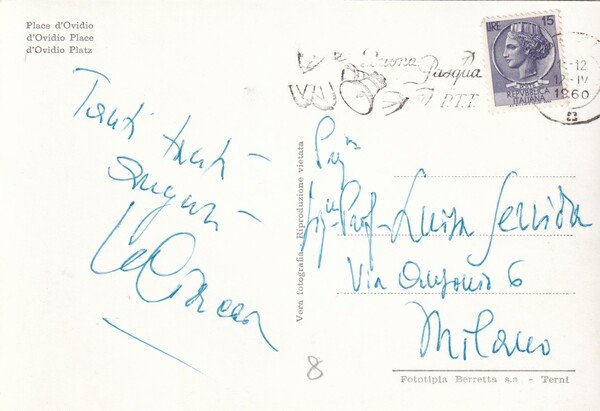 Place d'Ovidio
d'Ovidio Place
d'Ovidio Platz
Tanti tanti
auguri
Buona Pasqua
P.T.T.
LIRE 15
REPUBBLICA
ITALIANA
-12
12·IV
1960
Vera fotografia - Riproduzione vietata
Prof. Luisa
Via Antonio 6
Milano
8
Fototipia Berretta s.a - Terni